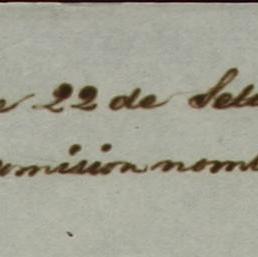 e 22 de Sete
omision nomb